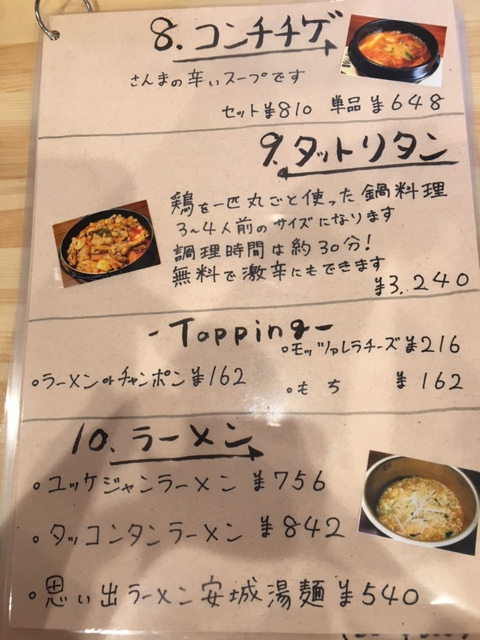 8. コンチチゲ
さんまの辛いスープです
セット¥810 単品¥648
9. タットリタン
鶏を一匹丸ごと使った鍋料理
3~4人前のサイズになります
調理時間は約30分!
無料で激辛にもできます
¥3,240
-Topping-
。モッツァレラチーズ¥216
。ラーメンorチャンポン¥162
。もち ¥162
10. ラーメン
。ユッケジャンラーメン ¥756
。タッコンタンラーメン ¥842
。思い出ラーメン安城湯麺 ¥540